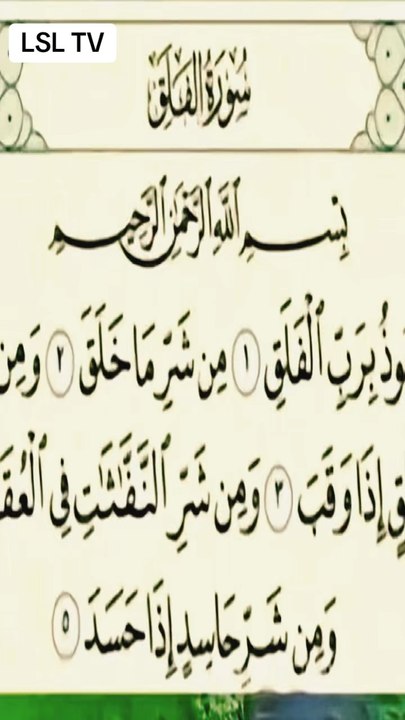 LSL TV
سُورَةُ الفَلَقِ
بِسْمِ ٱللَّهِ ٱلرَّحْمَٰنِ ٱلرَّحِيمِ
وذُ بِرَبِّ ٱلْفَلَقِ ١ مِن شَرِّ مَا خَلَقَ ٢ وَمِن
قٍ إِذَا وَقَبَ ٣ وَمِن شَرِّ ٱلنَّفَّٰثَٰتِ فِي ٱلْعُقَ
وَمِن شَرِّ حَاسِدٍ إِذَا حَسَدَ ٥